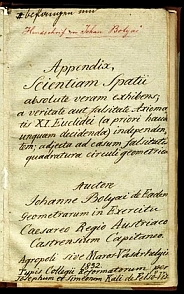 Appendix,
Scientiam Spatii
absolute veram exhibens;
a veritate aut falsitate Axioma-
tis XI Euclidei (a priori haud
unquam decidenda) independen-
tem; adjecta ad casum falsitatis
quadratura circuli geometrica.
Auctore
Johanne Bolyai de Eadem
Geometrarum in Exercitu
Caesareo Regio Austriaco
Castrensium Capitaneo.
Agropoli sive Maros-Vásárhelyini
1832.
Typis Collegii Reformatorum per
Josephum et Simeonem Kali de Felső Vist